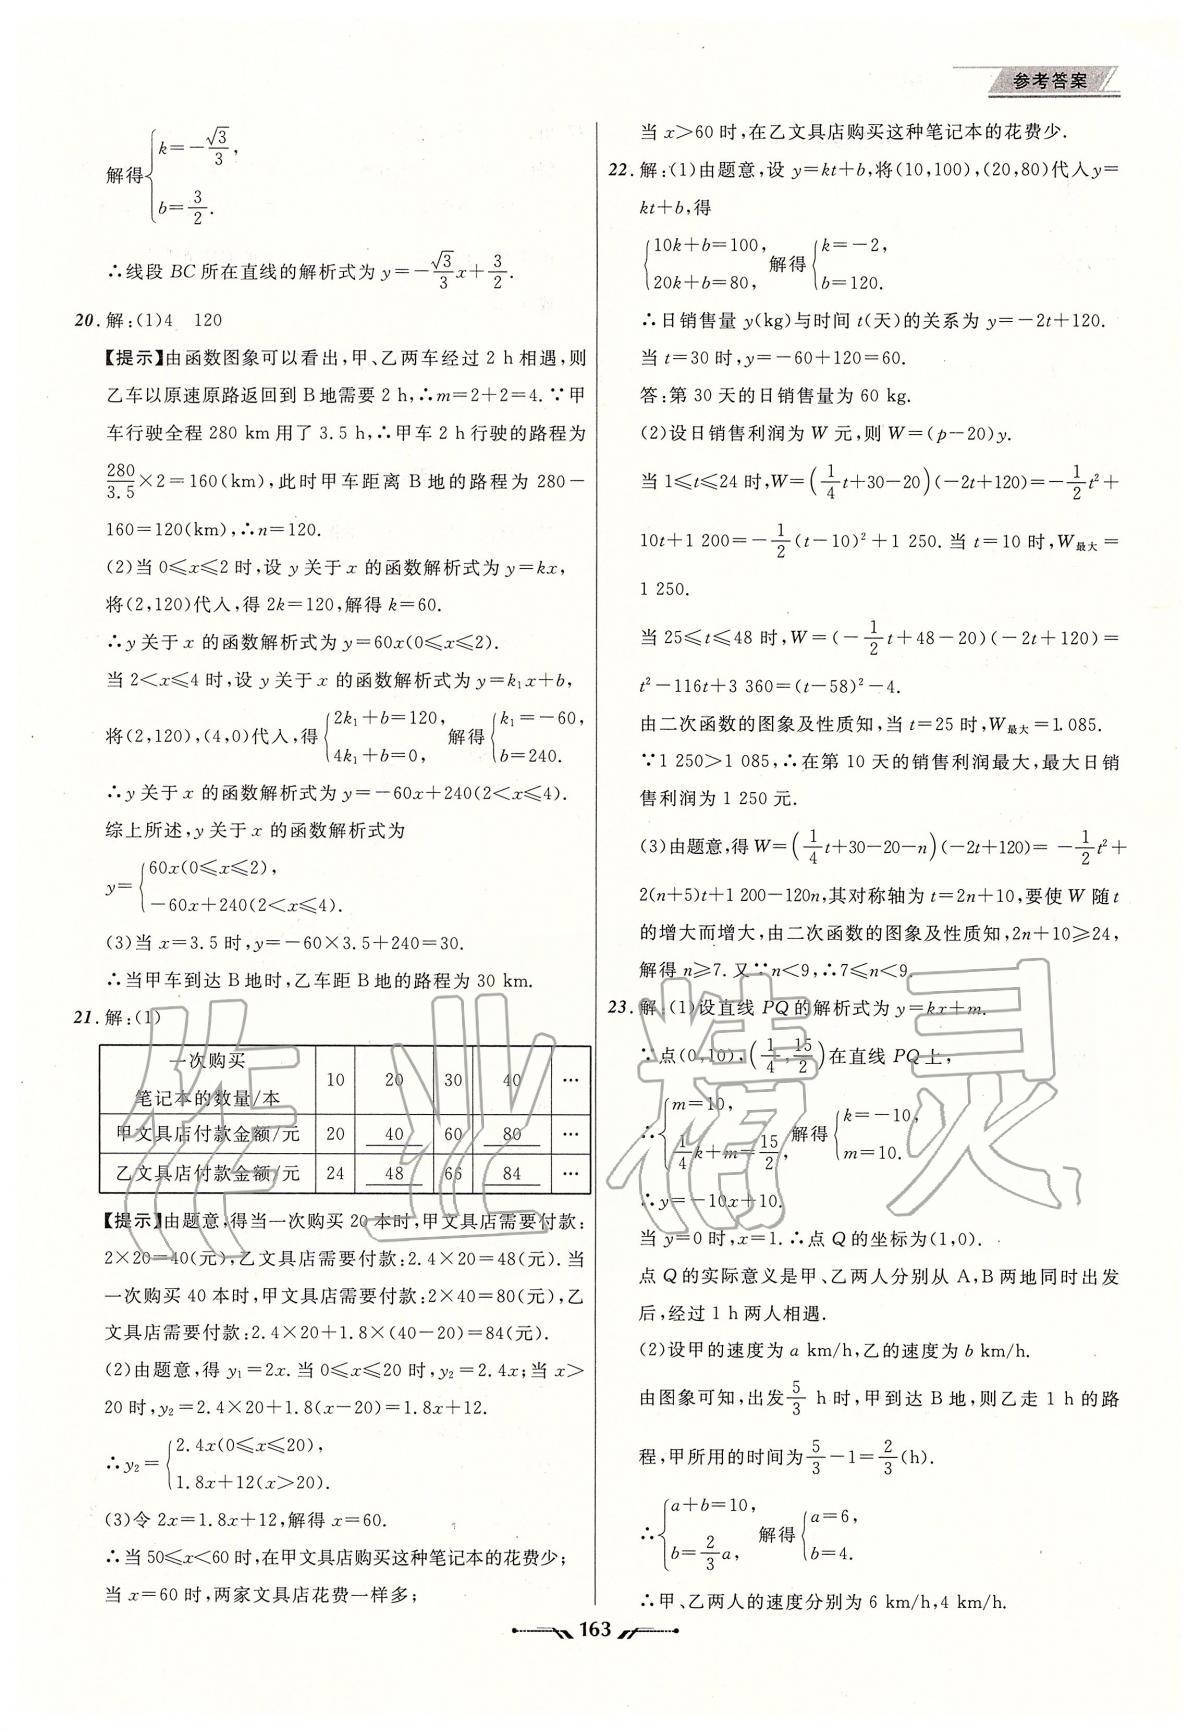 参考答案
解得{k=-√3/3,
b=3/2.
∴线段 BC 所在直线的解析式为 y=-√3/3x+3/2.
20.解:(1)4 120
【提示】由函数图象可以看出,甲、乙两车经过 2 h 相遇,则
乙车以原速原路返回到 B 地需要 2 h,∴m=2+2=4.∵甲
车行驶全程 280 km 用了 3.5 h,∴甲车 2 h 行驶的路程为
280/3.5×2=160(km),此时甲车距离 B 地的路程为 280-
160=120(km),∴n=120.
(2)当 0⩽x⩽2 时,设 y 关于 x 的函数解析式为 y=kx,
将(2,120)代人,得 2k=120,解得 k=60.
∴y 关于 x 的函数解析式为 y=60x(0⩽x⩽2).
当 2<x⩽4 时,设 y 关于 x 的函数解析式为 y=k₁x+b,
将(2,120),(4,0)代人,得{2k₁+b=120, 4k₁+b=0, 解得{k₁=-60, b=240.
∴y 关于 x 的函数解析式为 y=-60x+240(2<x⩽4).
综上所述,y 关于 x 的函数解析式为
y={60x(0⩽x⩽2),
-60x+240(2<x⩽4).
(3)当 x=3.5 时,y=-60×3.5+240=30.
∴当甲车到达 B 地时,乙车距 B 地的路程为 30 km.
21.解:(1)
一次购买
笔记本的数量/本 10 20 30 40 …
甲文具店付款金额/元 20 40 60 80 …
乙文具店付款金额/元 24 48 66 84 …
【提示】由题意,得当一次购买 20 本时,甲文具店需要付款:
2×20=40(元),乙文具店需要付款:2.4×20=48(元).当
一次购买 40 本时,甲文具店需要付款:2×40=80(元),乙
文具店需要付款:2.4×20+1.8×(40-20)=84(元).
(2)由题意,得 y₁=2x.当 0⩽x⩽20 时,y₂=2.4x;当 x>
20 时,y₂=2.4×20+1.8(x-20)=1.8x+12.
∴y₂={2.4x(0⩽x⩽20),
1.8x+12(x>20).
(3)令 2x=1.8x+12,解得 x=60.
∴当 50⩽x<60 时,在甲文具店购买这种笔记本的花费少;
当 x=60 时,两家文具店花费一样多;
当 x>60 时,在乙文具店购买这种笔记本的花费少.
22.解:(1)由题意,设 y=kt+b,将(10,100),(20,80)代人 y=
kt+b,得
{10k+b=100, 20k+b=80, 解得{k=-2, b=120.
∴日销售量 y(kg)与时间 t(天)的关系为 y=-2t+120.
当 t=30 时,y=-60+120=60.
答:第 30 天的日销售量为 60 kg.
(2)设日销售利润为 W 元,则 W=(p-20)y.
当 1⩽t⩽24 时,W=(1/4t+30-20)(-2t+120)=-1/2t²+
10t+1 200=-1/2(t-10)²+1 250.当 t=10 时,W最大=
1 250.
当 25⩽t⩽48 时,W=(-1/2t+48-20)(-2t+120)=
t²-116t+3 360=(t-58)²-4.
由二次函数的图象及性质知,当 t=25 时,W最大=1.085.
∵1 250>1 085,∴在第 10 天的销售利润最大,最大日销
售利润为 1 250 元.
(3)由题意,得 W=(1/4t+30-20-n)(-2t+120)=-1/2t²+
2(n+5)t+1 200-120n,其对称轴为 t=2n+10,要使 W 随 t
的增大而增大,由二次函数的图象及性质知,2n+10⩾24,
解得 n⩾7.又∵n<9,∴7⩽n<9.
23.解:(1)设直线 PQ 的解析式为 y=kx+m.
∵点(0,10),(1/4,15/2)在直线 PQ 上,
∴{m=10, 1/4k+m=15/2, 解得{k=-10, m=10.
∴y=-10x+10.
当 y=0 时,x=1.∴点 Q 的坐标为(1,0).
点 Q 的实际意义是甲、乙两人分别从 A,B 两地同时出发
后,经过 1 h 两人相遇.
(2)设甲的速度为 a km/h,乙的速度为 b km/h.
由图象可知,出发 5/3 h 时,甲到达 B 地,则乙走 1 h 的路
程,甲所用的时间为 5/3-1=2/3(h).
∴{a+b=10, b=2/3a, 解得{a=6, b=4.
∴甲、乙两人的速度分别为 6 km/h,4 km/h.
163
作业精灵